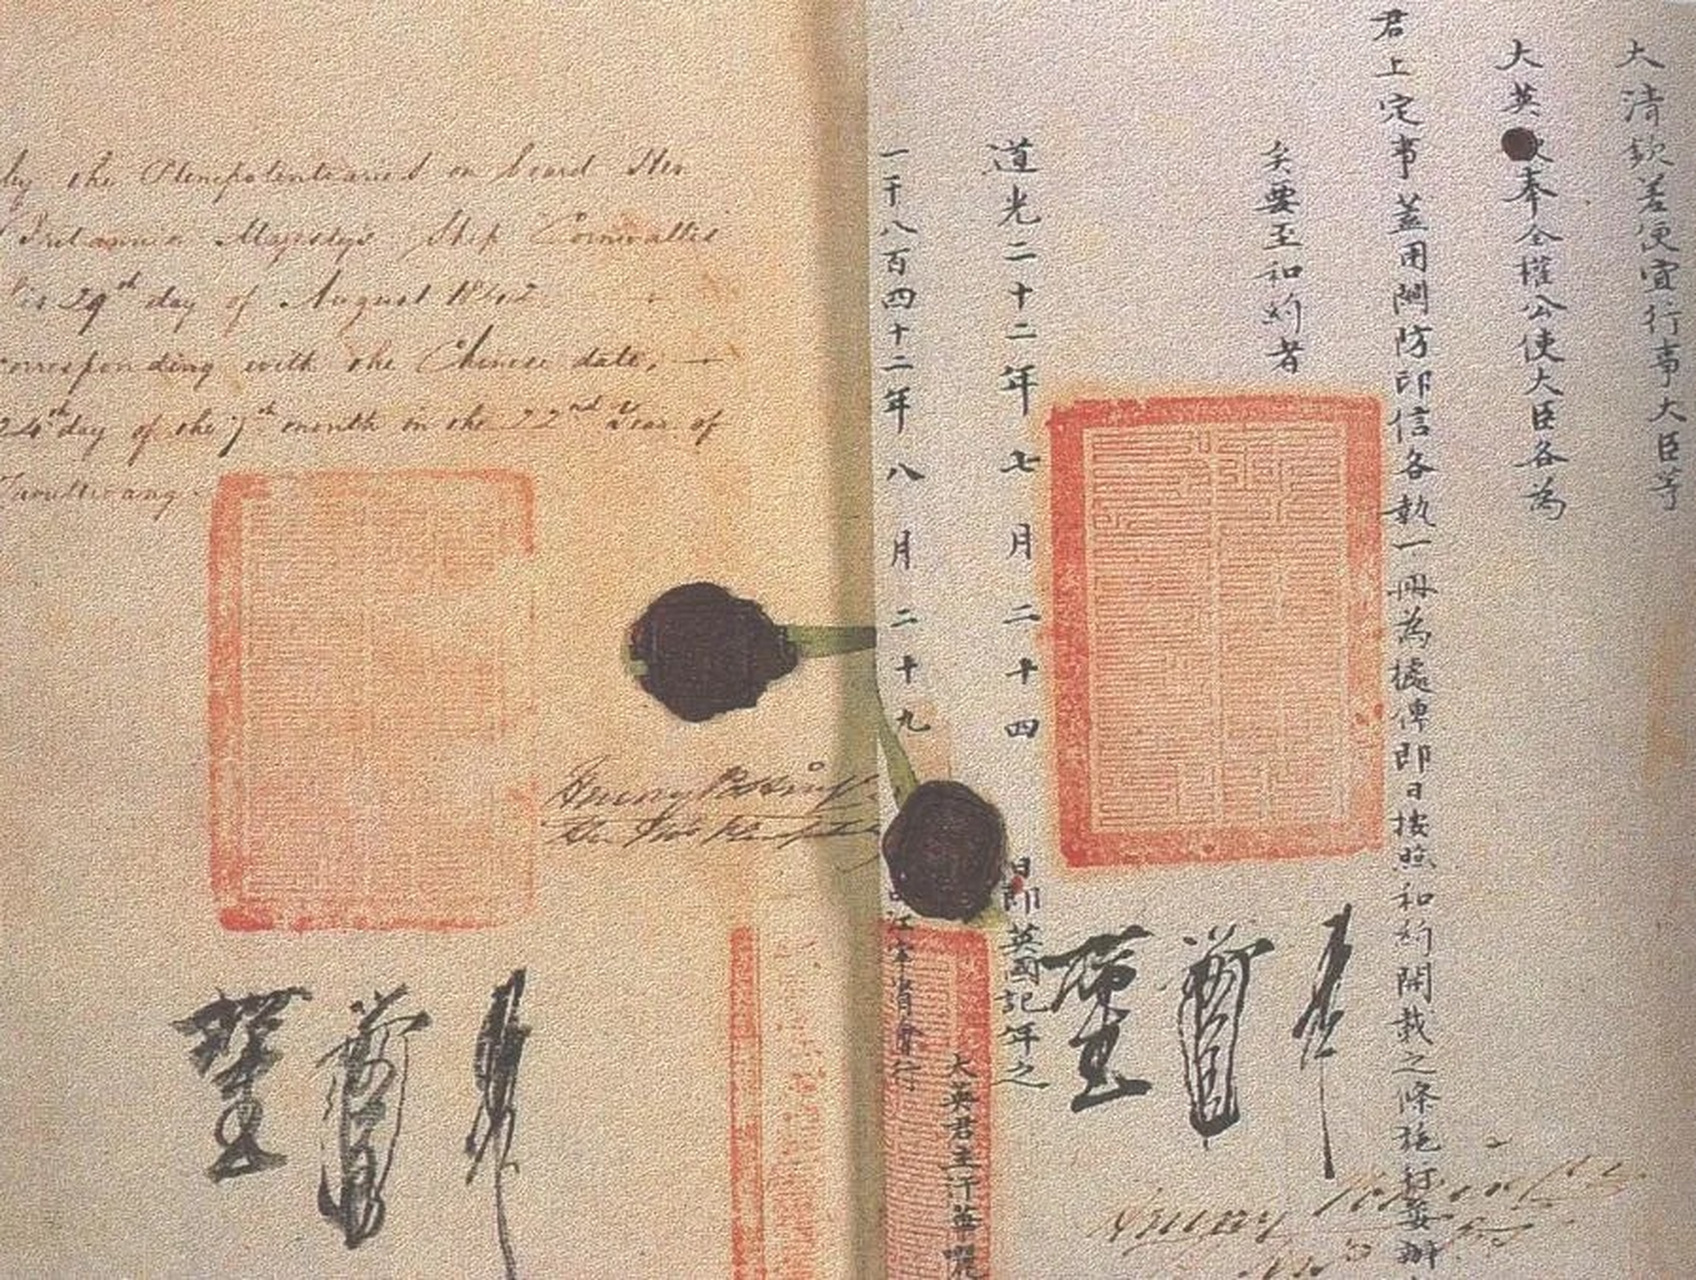 by the Plenipotentiaries on board Her
Britannic Majesty's Ship Cornwallis
this 29th day of August 1842
corresponding with the Chinese date,
24th day of the 7th month in the 22nd Year of
Taoukwang.
Henry Pottinger
大清欽差便宜行事大臣等
大英欽奉全權公使大臣各為
君上定事蓋用關防印信各執一冊為據俾即日按照和約開載之條施行妥辦
矣要至和約者
道光二十二年七月二十四日即英國記年之
一千八百四十二年八月二十九日江寧省會行
大英君主汗華囉
Henry Pottinger